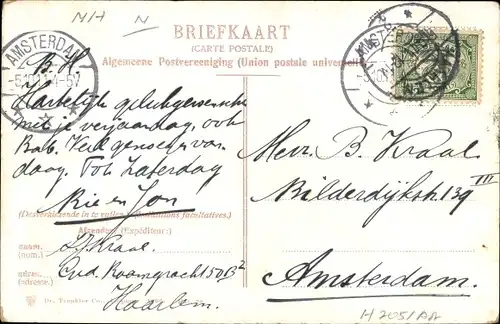 N/H N
BRIEFKAART
(CARTE POSTALE)
Algemeene Postvereeniging (Union postale universelle)
AMSTERDAM
B. H.
Hartelijk gelukgewenscht
met je verjaardag, ook
Bab. Veel genoegen van
daag. Tot Zaterdag
Rie en Jon
(Desverkiezende in te vullen. Indications facultatives.)
Afzender (Expéditeur:)
NAAM:
(nom.)
J. Kraal
ADRES:
(adresse.)
Oud. Raamgracht 50 B2
Haarlem.
Dr. Trenkler Co.
Heer. B. Kraal
Bilderdijkstr 139 III
Amsterdam.
H 2051/AA